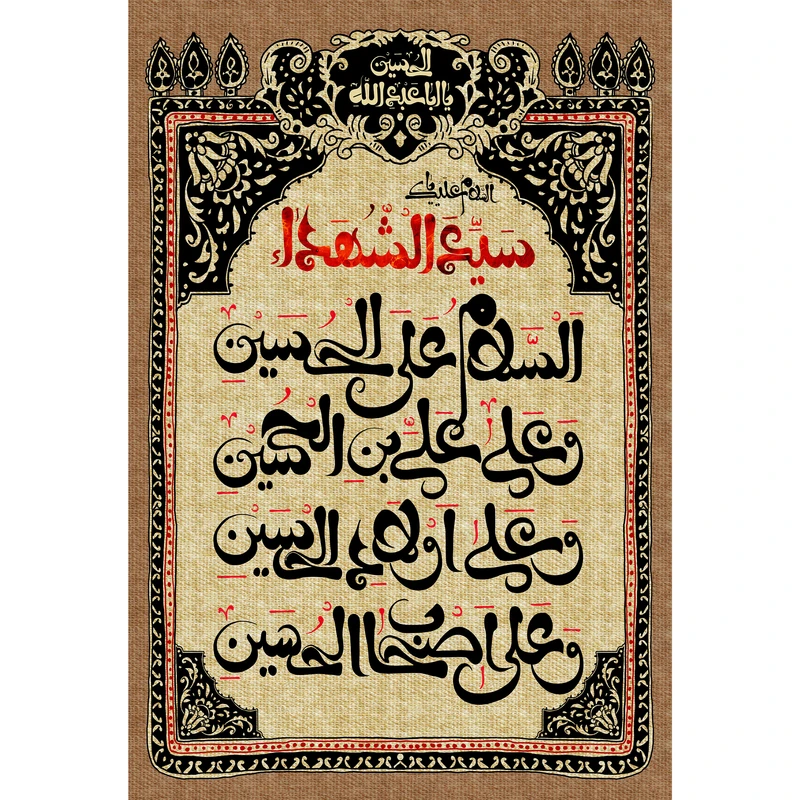 الحسین
یا اباعبدالله
السلام علیک
سَیِّدَ الشُّهَداء
اَلسَّلامُ عَلَی الْحُسَیْن
وَ عَلی عَلیِّ بْنِ الْحُسَیْن
وَ عَلی اَوْلادِ الْحُسَیْن
وَ عَلی اَصْحابِ الْحُسَیْن